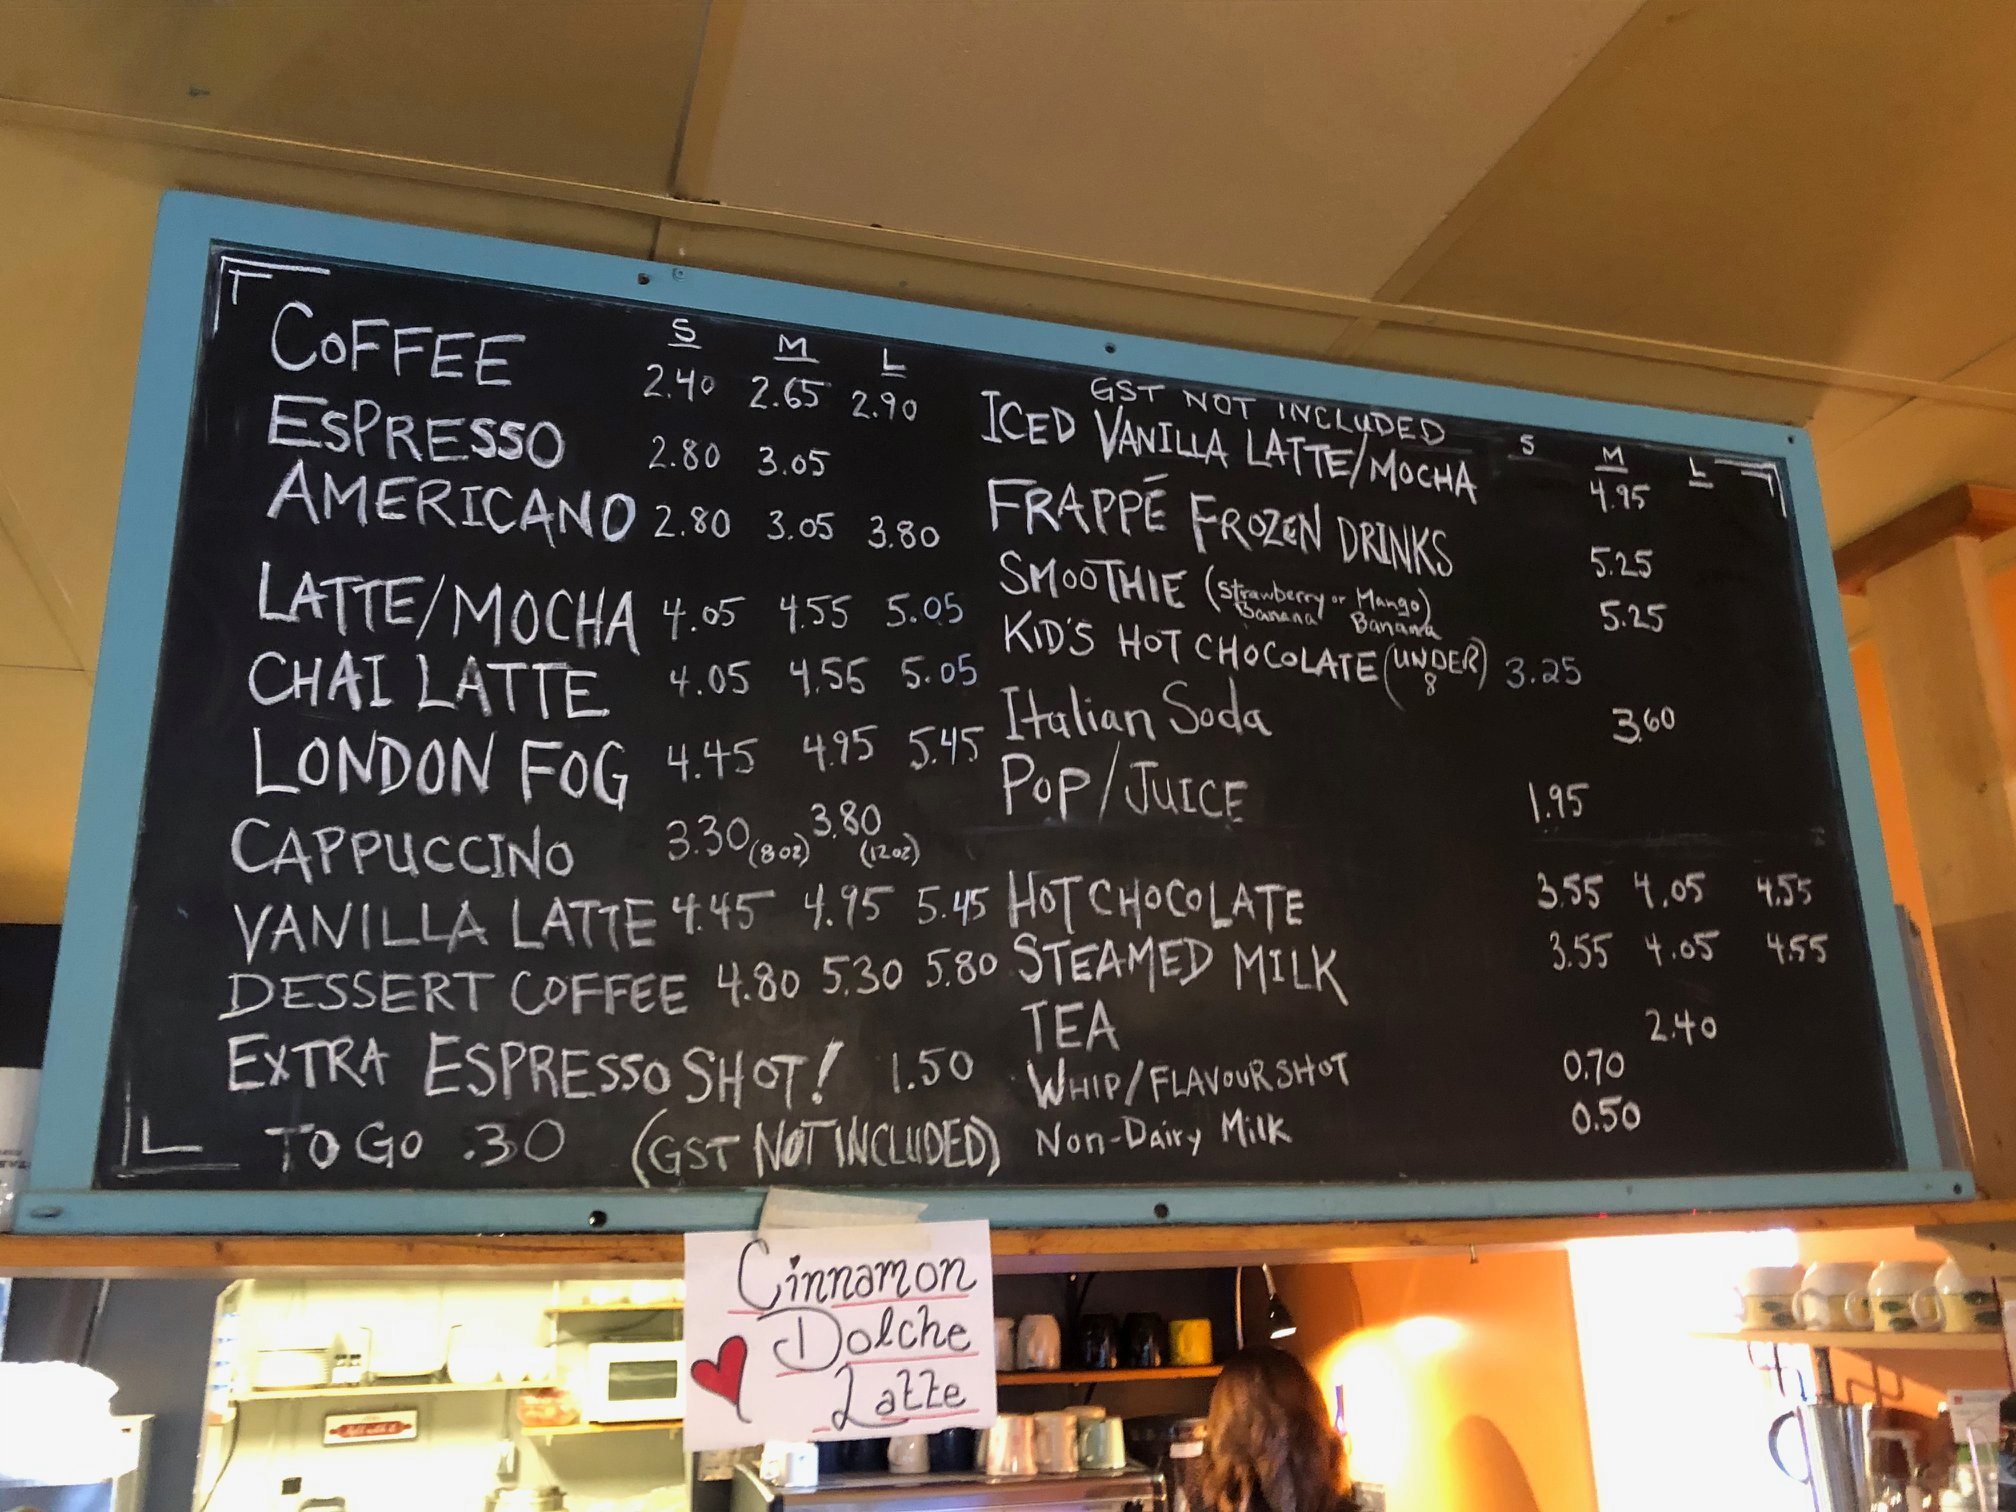 S M L
COFFEE 2.40 2.65 2.90
ESPRESSO 2.80 3.05
AMERICANO 2.80 3.05 3.80
LATTE/MOCHA 4.05 4.55 5.05
CHAI LATTE 4.05 4.55 5.05
LONDON FOG 4.45 4.95 5.45
CAPPUCCINO 3.30 (8oz) 3.80 (12oz)
VANILLA LATTE 4.45 4.95 5.45
DESSERT COFFEE 4.80 5.30 5.80
EXTRA ESPRESSO SHOT! 1.50
TO GO .30 (GST NOT INCLUDED)
GST NOT INCLUDED
S M L
ICED VANILLA LATTE/MOCHA 4.95
FRAPPÉ FROZEN DRINKS 5.25
SMOOTHIE (Strawberry or Mango) 5.25
Banana Banana
KID'S HOT CHOCOLATE (UNDER 8) 3.25
Italian Soda 3.60
POP/JUICE 1.95
HOT CHOCOLATE 3.55 4.05 4.55
STEAMED MILK 3.55 4.05 4.55
TEA 2.40
WHIP/FLAVOUR SHOT 0.70
NON-DAIRY MILK 0.50
Cinnamon
Dolche
Latte